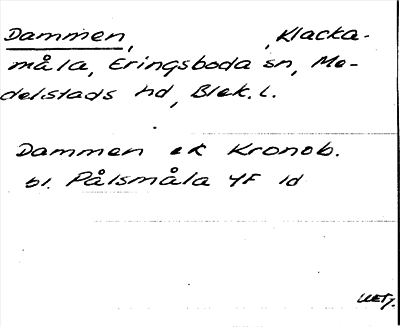 Dammen, , Klacka-
måla, Eringsboda sn, Me-
delstads hd, Blek. l.
Dammen ek Kronob.
bl. Pålsmåla YF ld